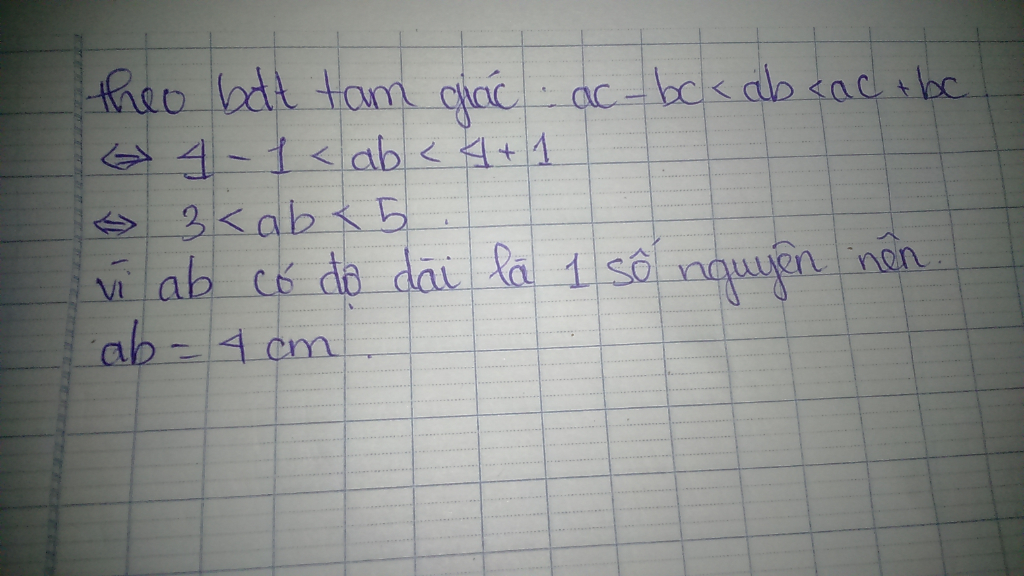 theo bdt tam giác : ac - bc < ab < ac + bc
⇔ 4 - 1 < ab < 4 + 1
⇔ 3 < ab < 5 .
vì ab có độ dài là 1 số nguyên nên.
ab = 4 cm .